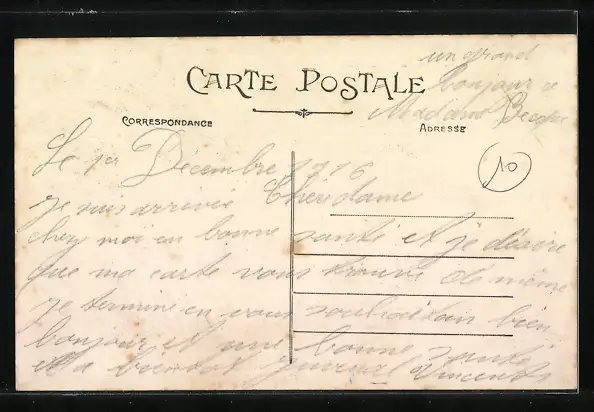 un grand
bonjour a
Madame
CARTE POSTALE
CORRESPONDANCE
ADRESSE
10
Le 1er Decembre 1916
Chere dame
je suis arrivée
chez moi en bonne santé et je désire
que ma carte vous trouve de même
je termine en vous souhaitan bien
bonjour et une bonne santé
et a bientot Vincent